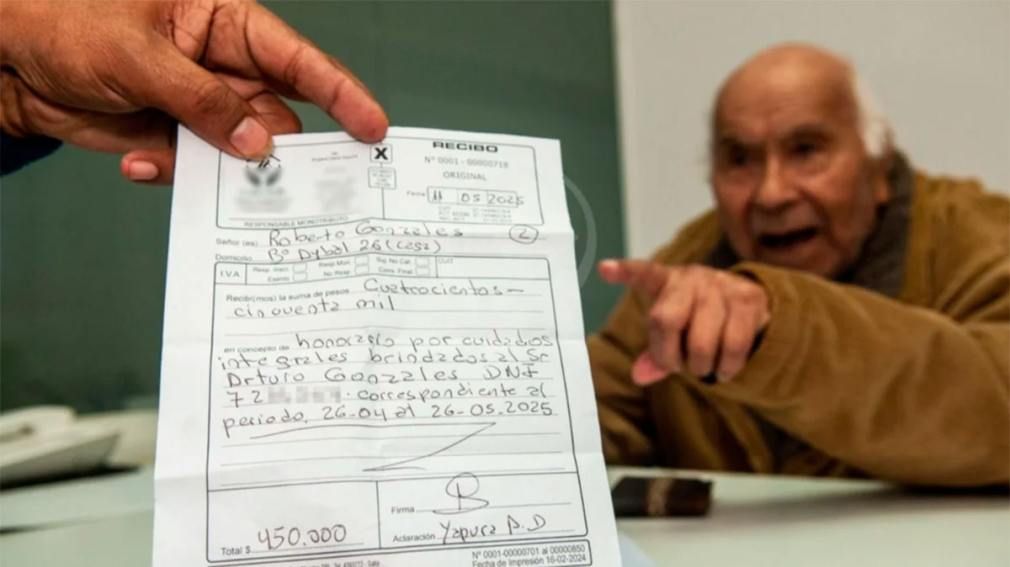 X
RECIBO
Nº 0001 - 00000718
ORIGINAL
Fecha 11 05 2025
RESPONSABLE MONOTRIBUTO
Señor (es) Roberto Gonzales 2
Domicilio Bº Dybal 26 (casa)
I.V.A Resp. Inscr. Resp Mon. Sig. No Cat. CUIT
Exento No Resp. Cons. Final
Recibi(mos) la suma de pesos Cuatrocientos-
cincuenta mil
en concepto de honorario por cuidados
integrales brindados al Sr
Arturo Gonzales DNI
72 correspondiente al
periodo, 26-04 al 26-05.2025
Total $ 450.000
Firma B
Aclaración Yapura A.D
Nº 0001-00000701 al 00000850
Fecha de Impresión 16-02-2024